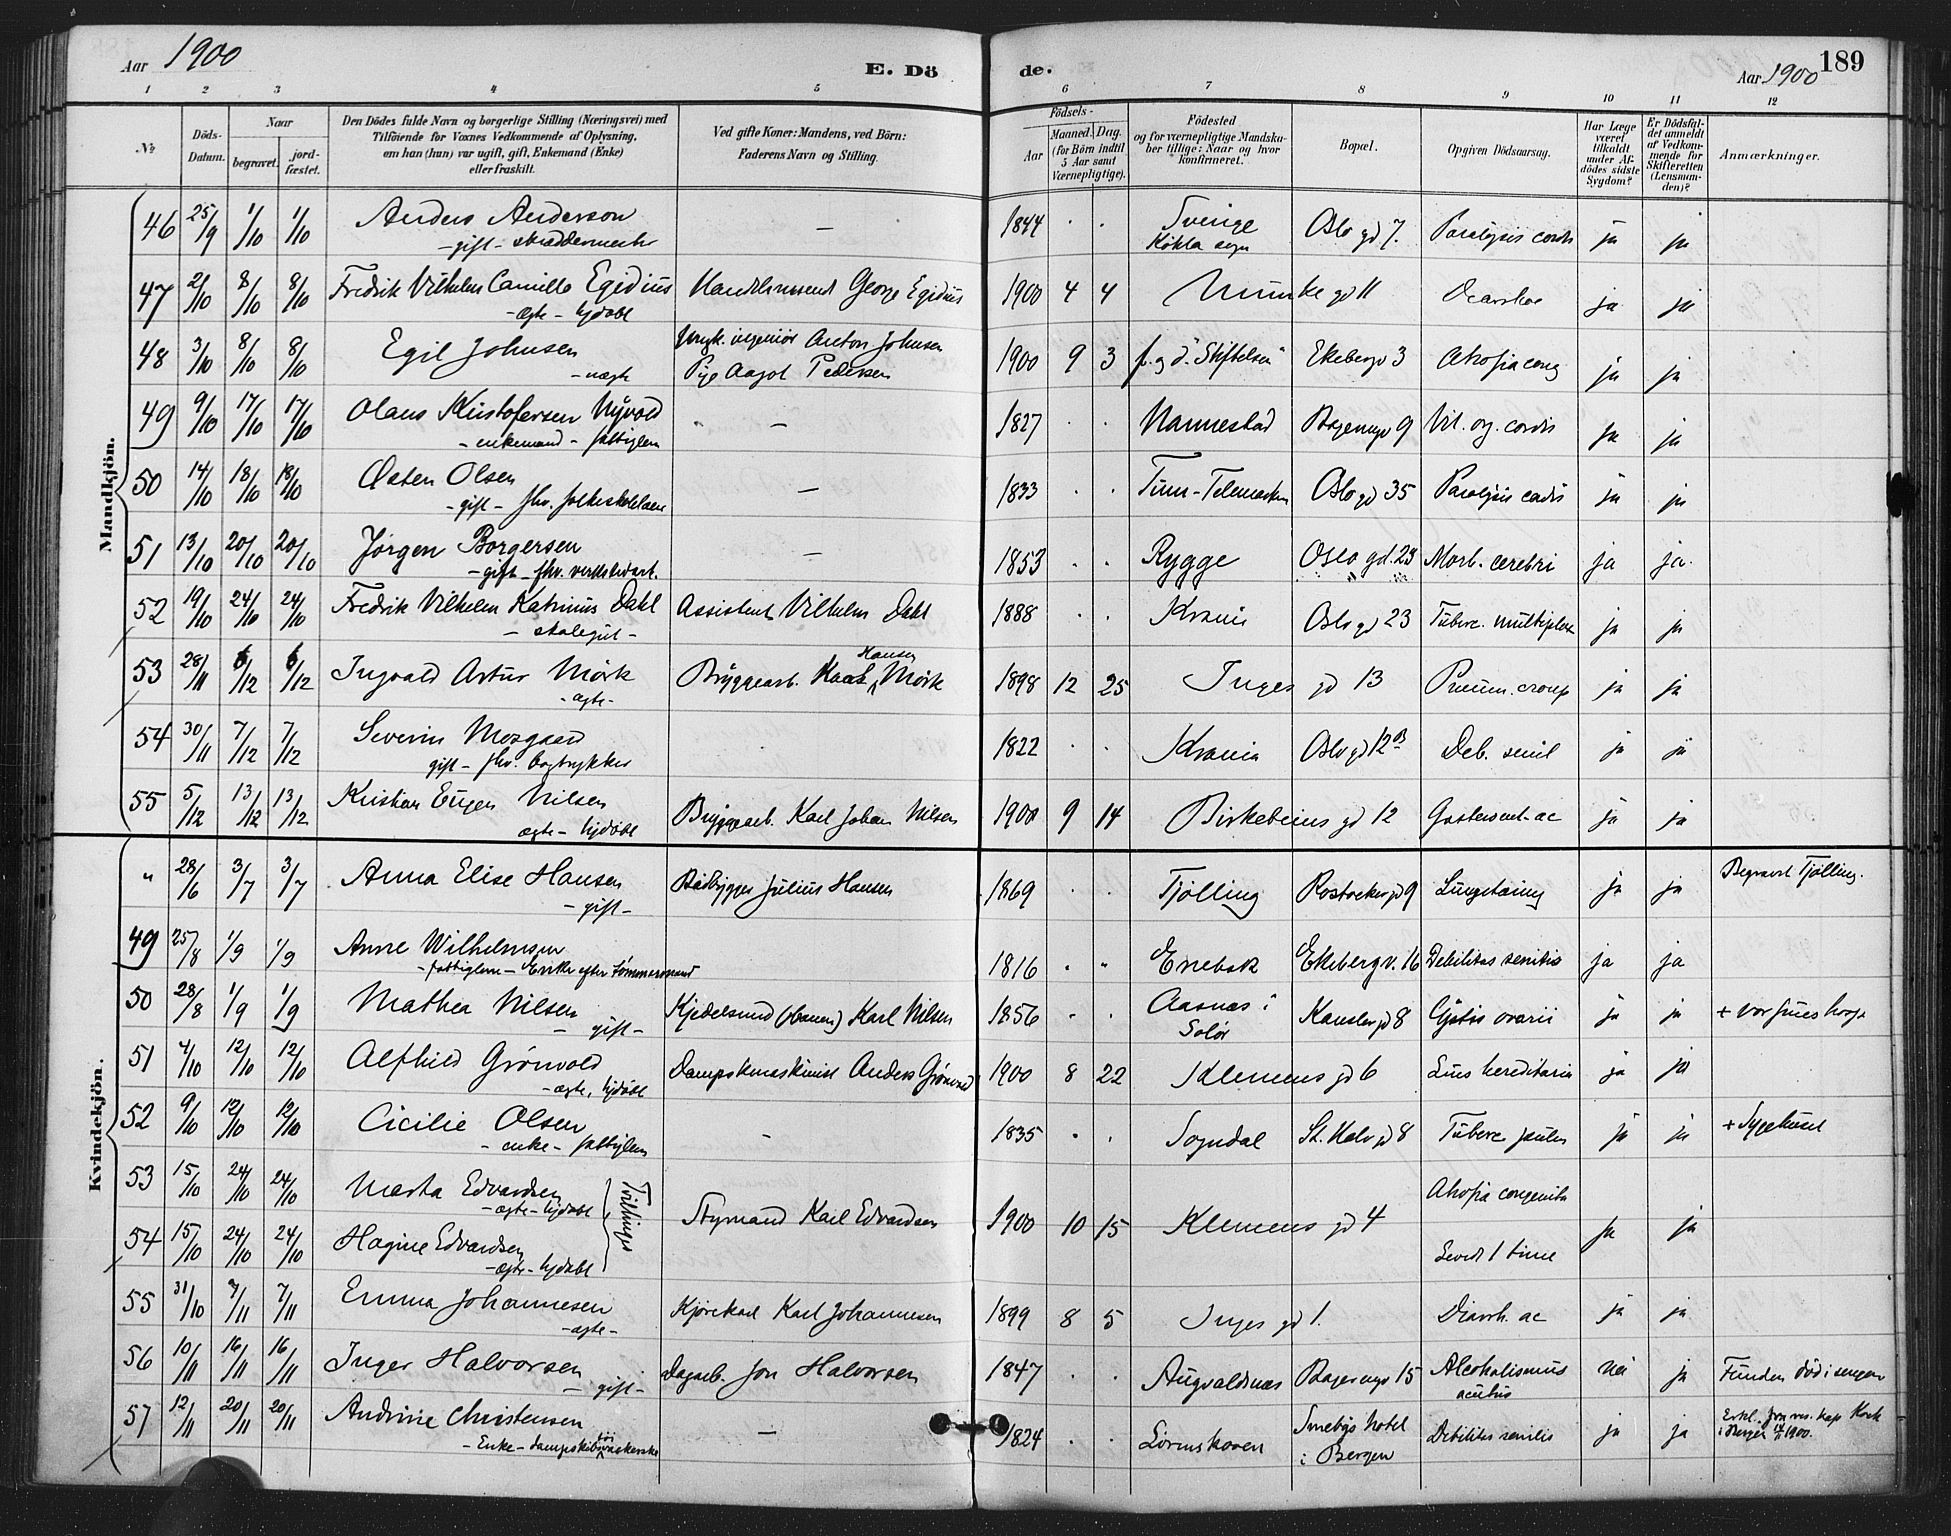 Aar 1900
E. Dö
de.
Aar 1900
189
1 2 3 4 5 6 7 8 9 10 11 12
№
Döds-
Datum.
Naar
begravet.
jord-
fæstet.
Den Dödes fulde Navn og borgerlige Stilling (Næringsvei) med
Tilföiende for Voxnes Vedkommende af Oplysning,
om han (hun) var ugift, gift, Enkemand (Enke)
eller fraskilt.
Ved gifte Koner: Mandens, ved Börn:
Faderens Navn og Stilling.
Födsels-
Aar
Maaned. Dag.
(for Börn indtil
5 Aar samt
Værnepligtige).
Födested
og for værnepligtige Mandska-
ber tillige: Naar og hvor
Konfirmeret.
Bopæl.
Opgiven Dödsaarsag.
Har Læge
været
tilkaldt
under Af-
dödes sidste
Sygdom?
Er Dödsfal-
det anmeldt
af Vedkom-
mende for
Skifteretten
(Lensman-
den)?
Anmærkninger.
Mandkjön.
46 25/9 1/10 1/10 Anders Anderson — 1844 . . Sverige Oslo gd 7. Paralysis cordis ja ja
- gift - skræddermester Kökla sogn
47 2/10 8/10 8/10 Fredrik Vilhelm Camillo Egidius Handelsmand George Egidius 1900 4 4 Munke gd 11 ja ja
- ægte - hjdøbt
48 3/10 8/10 8/10 Egil Johnsen ingeniör Anton Johnsen 1900 9 3 f. og d. "Stiftelsen" Ekebergv 3 Atrofia cong ja ja
- uægte Pige Aagot Pedersen
49 9/10 17/10 17/10 Olaus Kristofersen Nyvold — 1827 . . Nannestad 9 Vit. org. cordis ja ja
- enkemand - fattiglem
50 14/10 18/10 18/10 Østen Olsen — 1833 . . Tinn - Telemarken Oslo gd 35 Paralysis cordis ja ja
- gift - fhv. folkeskolelærer
51 13/10 20/10 20/10 Jørgen Borgersen — 1853 . . Rygge Oslo gd. 23 Morb. cerebri ja ja.
- gift - fhv.
52 19/10 24/10 24/10 Fredrik Vilhelm Katrinus Dahl Assistent Vilhelm Dahl 1888 . . Krania Oslo gd 23 Tuberc. multiplex ja ja
- skolegut -
53 28/11 6/12 6/12 Ingvald Artur Mörk Bryggearb. Hansen Mörk 1898 12 25 Inges gd 13 Pneum. croup ja ja
- ægte -
54 30/11 7/12 7/12 Severin Mosgaard 1822 . . Krania Oslo gd 12 B Deb. senil ja ja
gift - fhv. bogtrykker
55 5/12 13/12 13/12 Kristian Eugen Nilsen Bryggearb. Karl Johan Nilsen 1900 9 14 Birkebeins gd 12 Gastroent. ac ja ja
ægte - hjdøbt
Kvindekjön.
" 28/6 3/7 3/7 Anna Elise Hansen Baadbygger Julius Hansen 1869 . . Tjölling Rostockergd 9 Lungetæring ja ja Begravet Tjölling.
- gift -
49 25/8 1/9 1/9 Anne Wilhelmsen 1816 . . Enebak Ekebergv. 16 Debilitas senilis ja ja
- fattiglem - Enke efter tömmermand
50 28/8 1/9 1/9 Mathea Nilsen Kjedelsmed Karl Nilsen 1856 . . Aasnæs i Kansler gd 8 Cystis ovarii ja ja + Vor frues hosp
- gift - Solör
51 4/10 12/10 12/10 Alfhild Grönvold Dampskmaskinist Anders Grönvold 1900 8 22 Klemens gd 6 Lues hereditaria ja ja
- ægte, hjdøbt
52 9/10 12/10 12/10 Cicilie Olsen — 1835 . . Sogndal St. Halv gd 8 Tuberc pulm ja ja + Sygehuset
- enke - fattiglem
53 15/10 24/10 24/10 Marta Edvardsen Atrofia congenita
- ægte - hjdøbt Tvillinger Styrmand Karl Edvardsen 1900 10 15 Klemens gd 4 ja ja
54 15/10 24/10 24/10 Hagine Edvardsen Levede 1 time
- ægte - hjdøbt
55 31/10 7/11 7/11 Emma Johannesen Kjørekarl Karl Johannesen 1899 8 5 Inges gd 1. Diarrh. ac ja ja
- ægte -
56 10/11 16/11 16/11 Inger Halvorsen Dagarb. Jon Halvorsen 1847 . . Augvaldsnæs 15 Alcoholismus nei ja Funden död i sengen
- gift - acutus
57 12/11 20/11 20/11 Andrine Christensen — 1824 . . Lörenskoven Smebys hotel Debilitas senilis ja ja Erkl. fra res. kap
- Enke - dampskibstöivaskerske i Bergen i Bergen 1900.